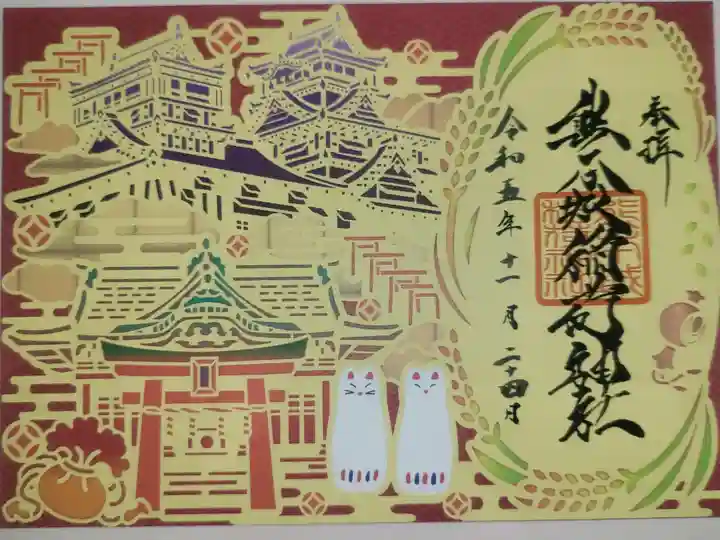 奉拝
熊本城稲荷神社
令和五年十一月二十四日